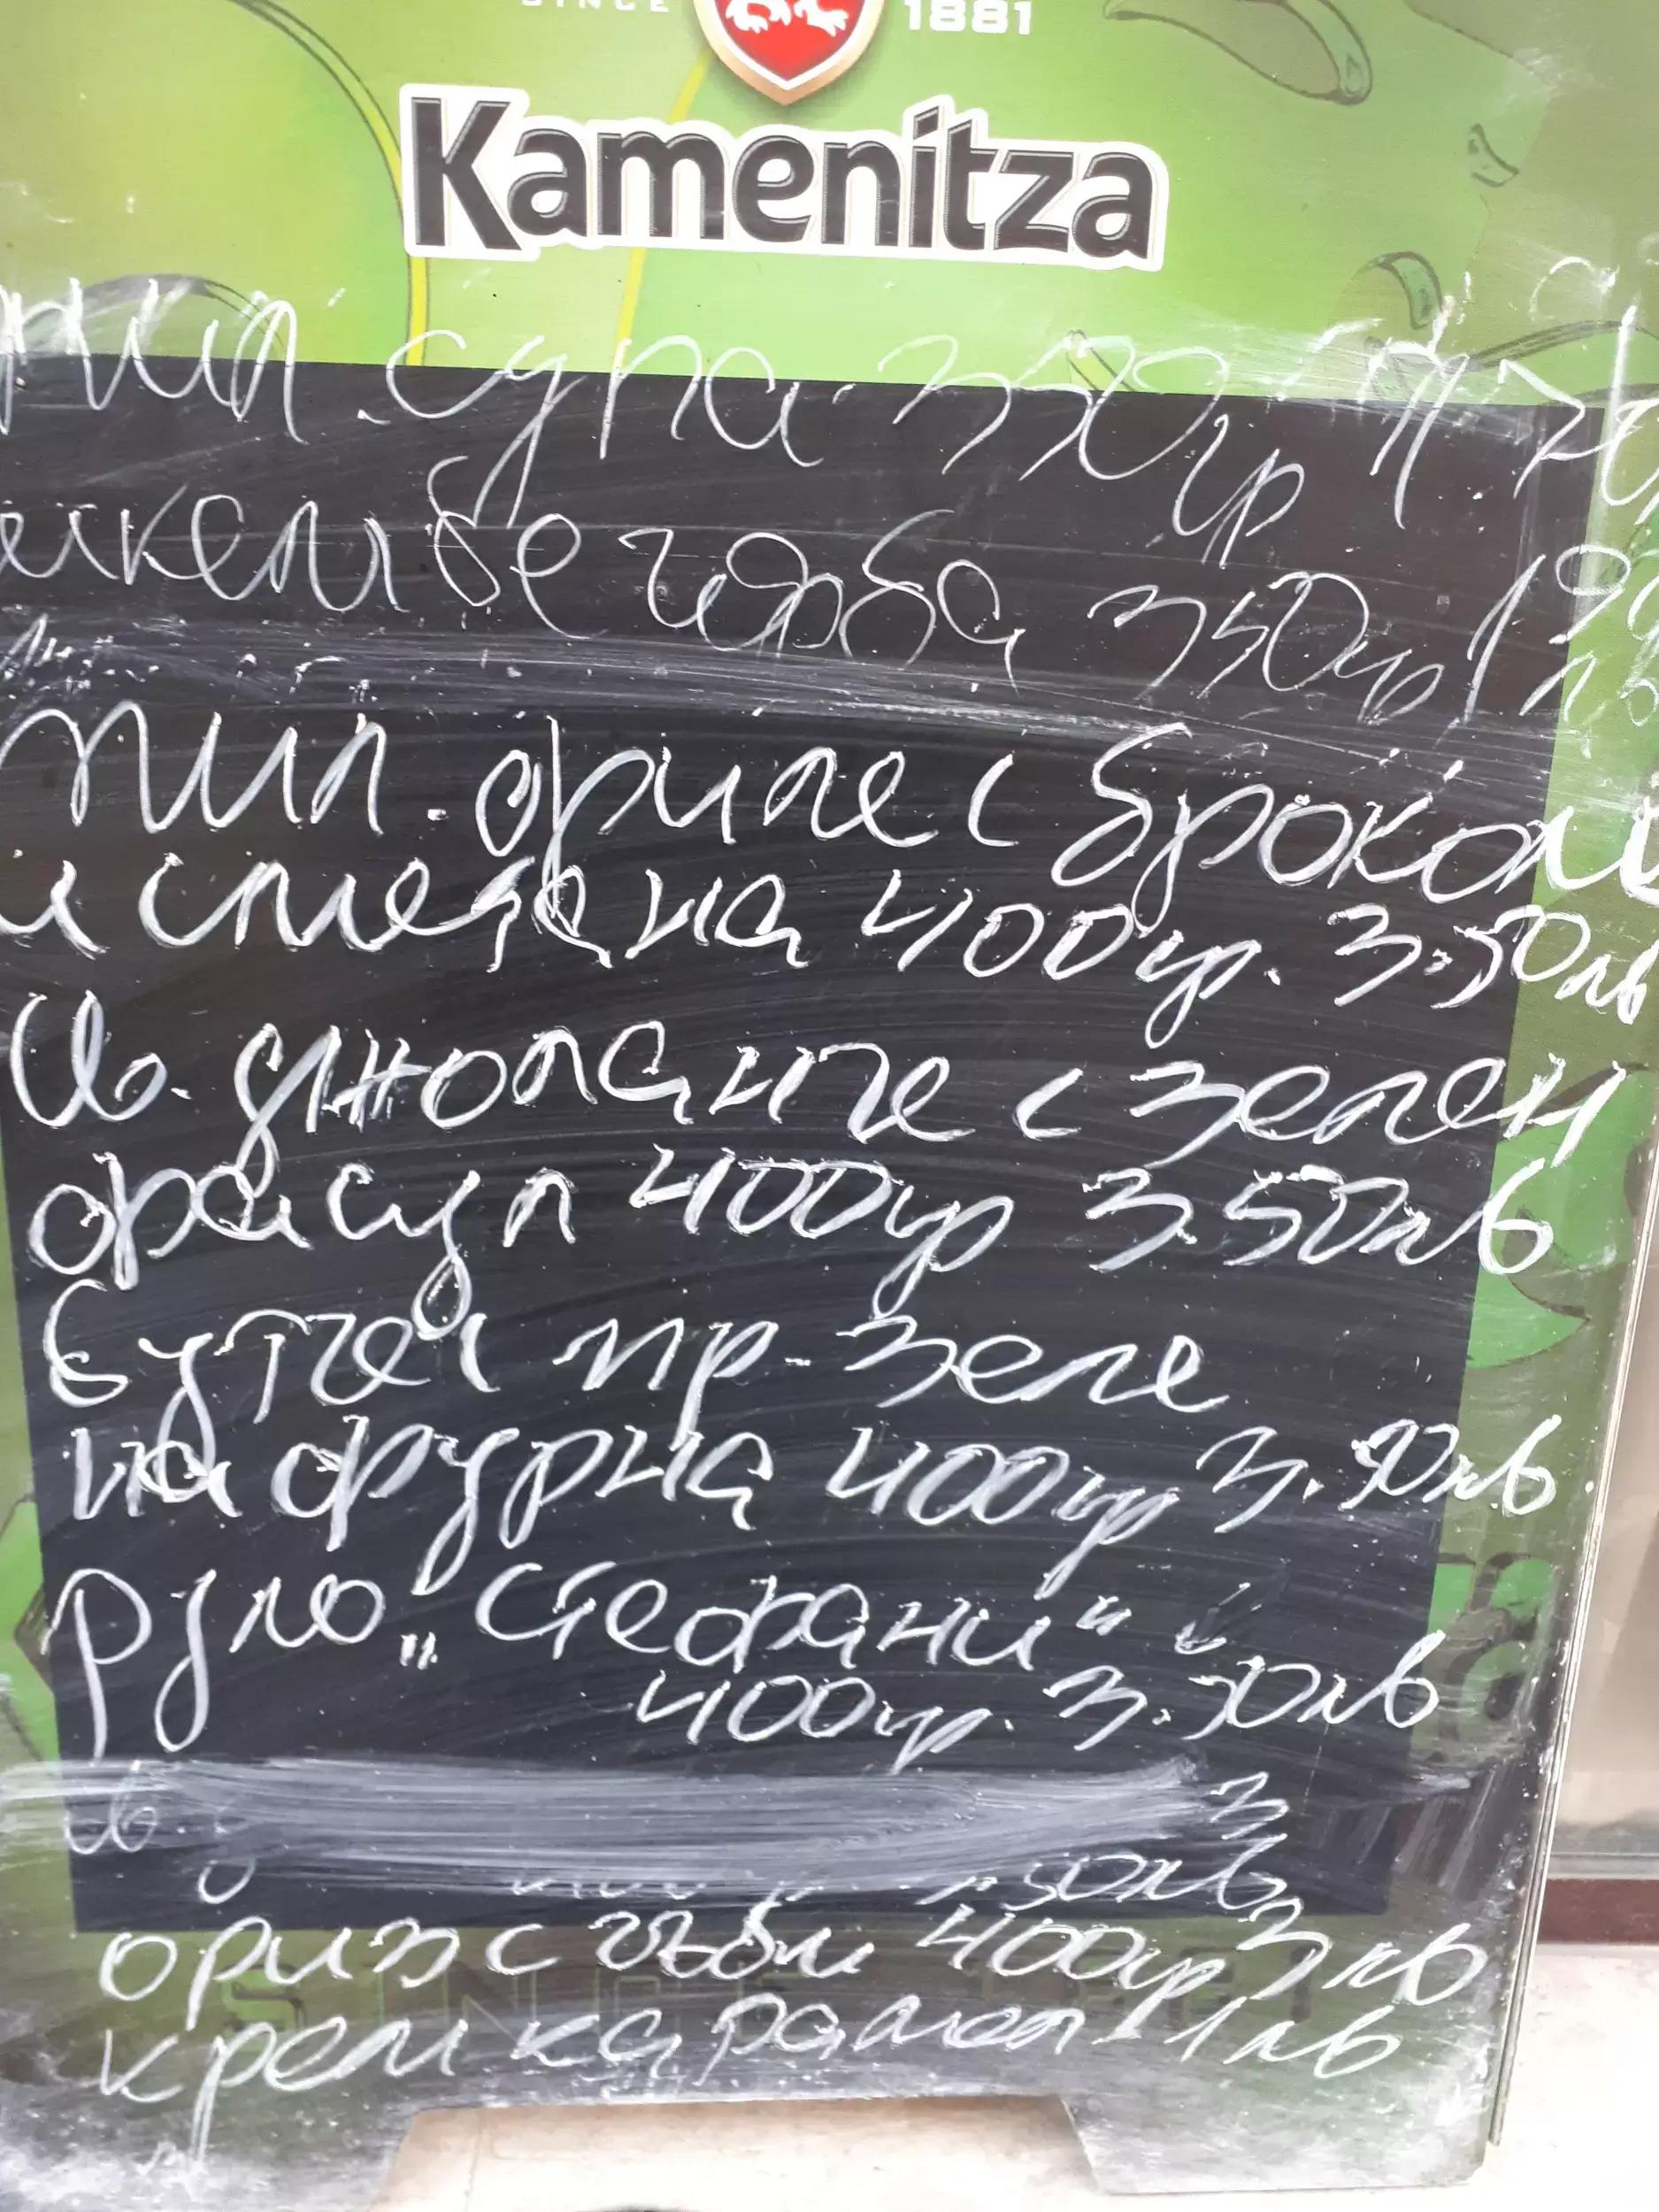 SINCE 1881
Kamenitza
пил. супа 350гр
шкембе чорба 350гр
пил. филе с броколи
и сметана 400гр. 3.50лв
св. джолан с зелен
фасул 400гр 3.50лв
бутчет пр. зеле
на фурна 400гр 3.50лв.
Руло „Стефани"
400гр. 3.50лв
св.
3
.50лв
ориз с гъби 400гр 3лв
крем карамел 1лв